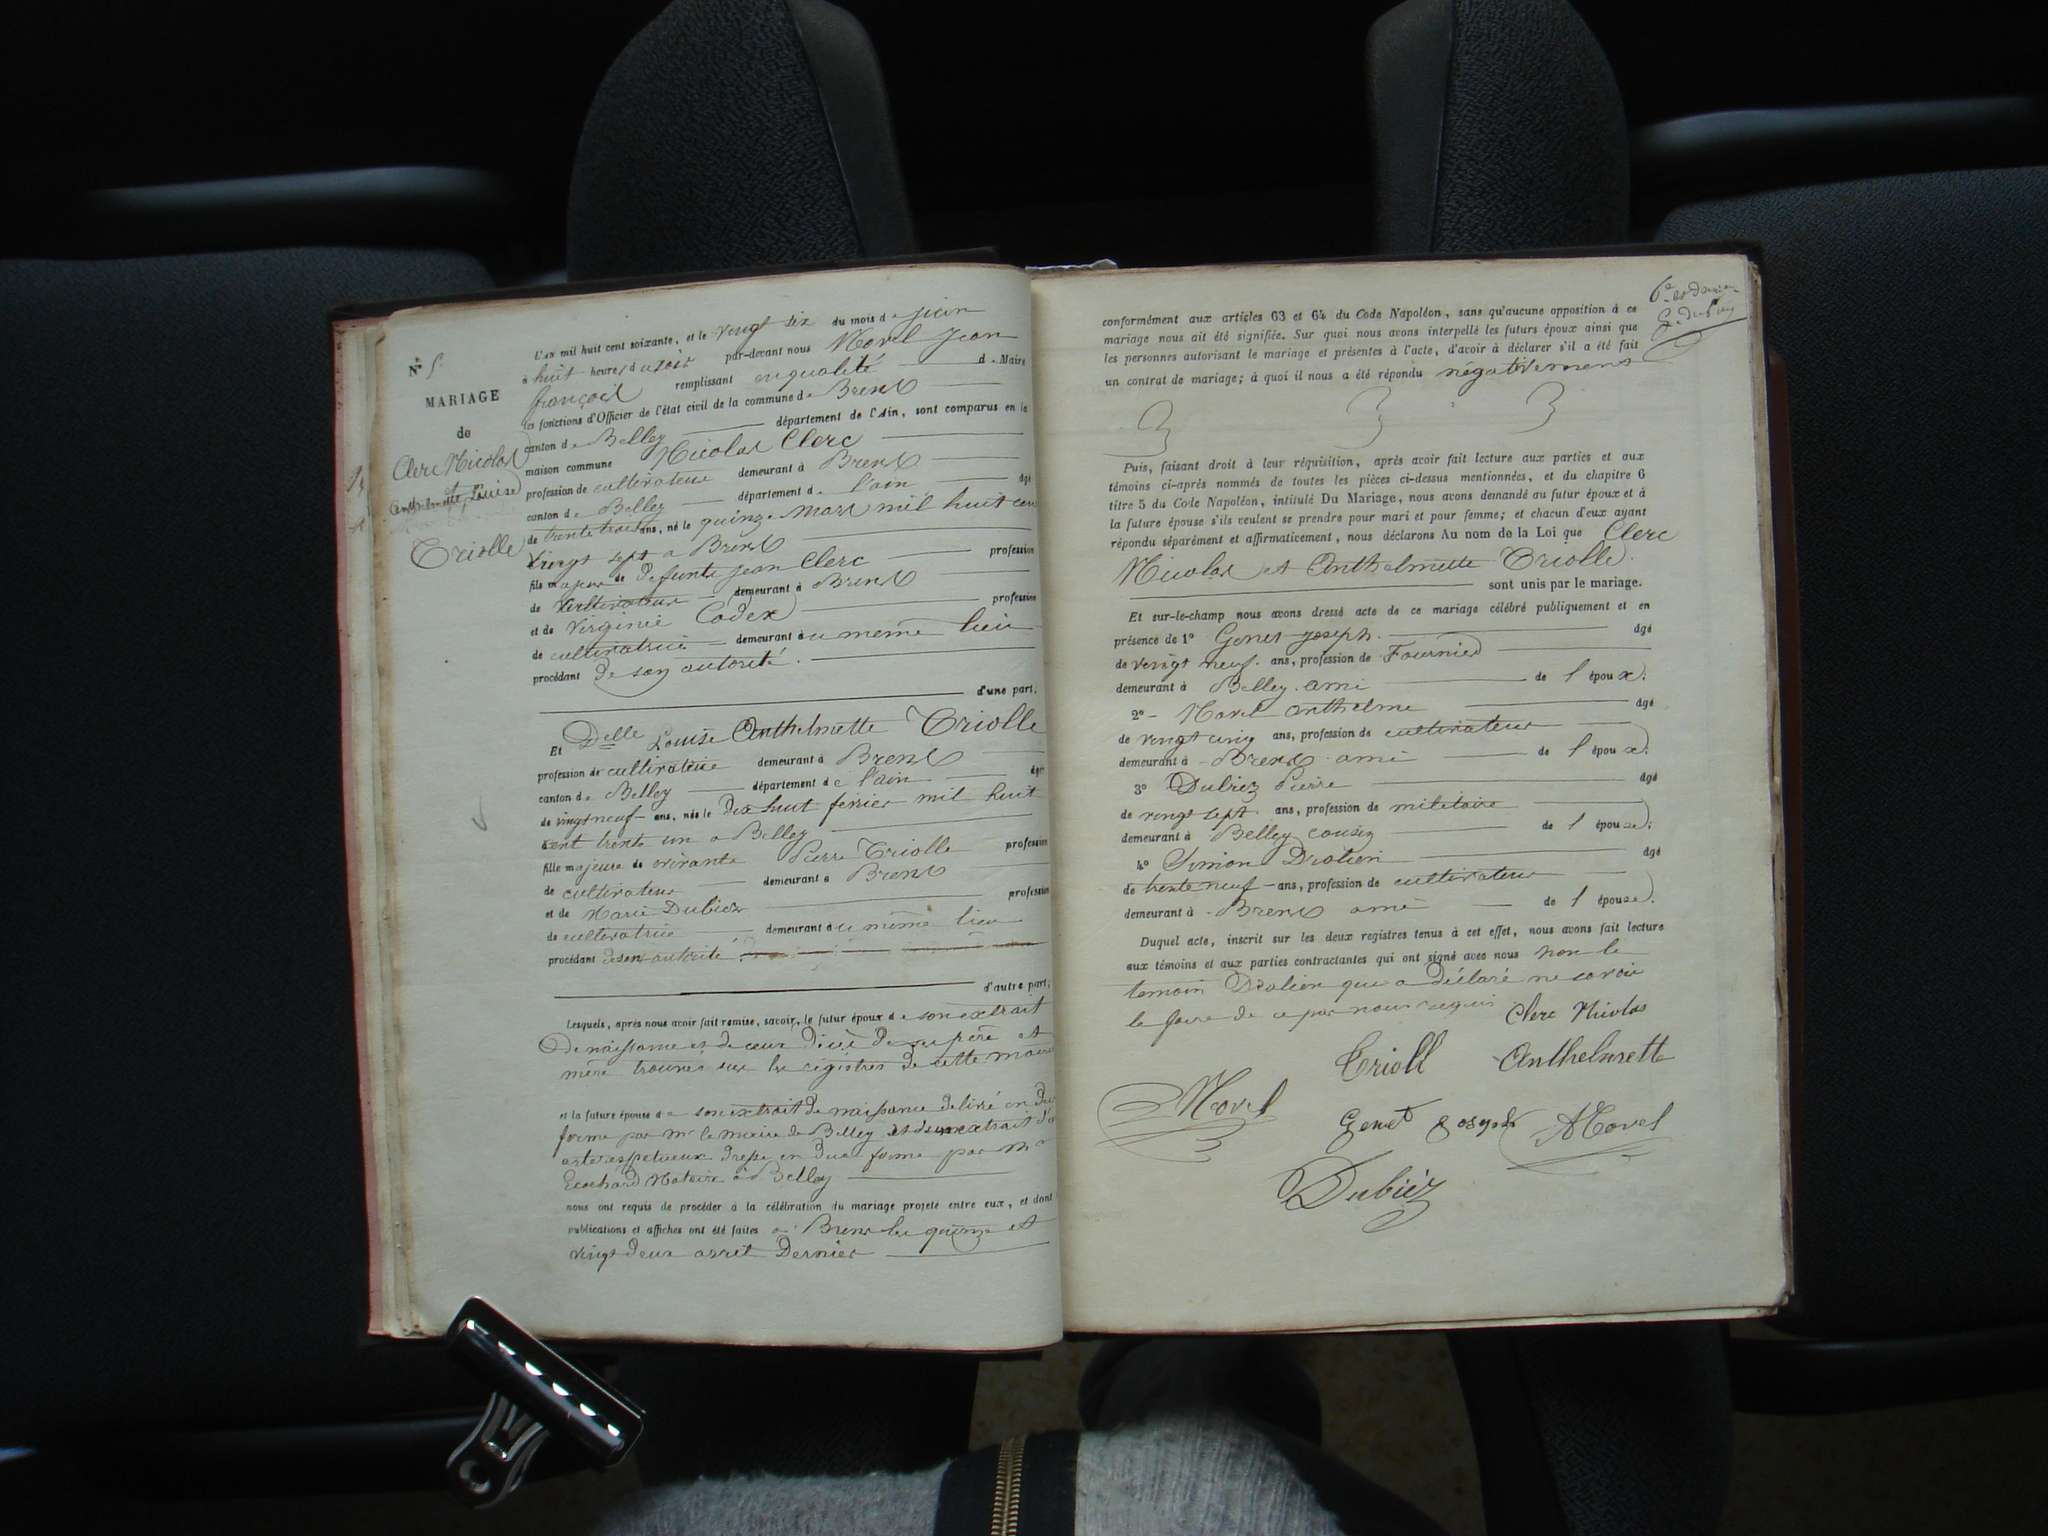 N° 5.
MARIAGE
de
Clerc Nicolas
et
Anthelmette Louise
Triolle
L'AN mil huit cent soixante, et le vingt six du mois de juin
à huit heures du soir par-devant nous Morel Jean
françois remplissant en qualité de Maire
les fonctions d'Officier de l'état civil de la commune de Brens
canton de Belley département de l'Ain, sont comparus en la
maison commune Nicolas Clerc
profession de cultivateur demeurant à Brens
canton de Belley département de l'ain âgé
de trente trois ans, né le quinze mars mil huit cent
vingt sept à Brens
fils majeur de défunts jean Clerc profession
de cultivateur demeurant à Brens
et de Virginie Cadex profession
de cultivatrice demeurant au même lieu
procédant de son autorité.
d'une part,
Et Delle Louise Anthelmette Triolle
profession de cultivatrice demeurant à Brens
canton de Belley département de l'ain âgée
de vingt neuf ans, née le dix huit février mil huit
cent trente un à Belley
fille majeure de vivants Pierre Triolle profession
de cultivateur demeurant à Brens
et de Marie Dubiez profession
de cultivatrice demeurant au même lieu
procédant de son autorité
d'autre part,
Lesquels, après nous avoir fait remise, savoir, le futur époux de son extrait
de naissance et de ceux de ses père et
mère trouvés sur les régistres de cette mairie
et la future épouse de son extrait de naissance delivré en due
forme par mr le maire de Belley et d'un extrait d'
acte respectueux dressé en due forme par Me
Notaire à Belley
nous ont requis de procéder à la célébration du mariage projeté entre eux, et dont
publications et affiches ont été faites à Brens les quinze et
vingt deux avril dernier
6e et dernier
conformément aux articles 63 et 64 du Code Napoléon, sans qu'aucune opposition à ce
mariage nous ait été signifiée. Sur quoi nous avons interpellé les futurs époux ainsi que
les personnes autorisant le mariage et présentes à l'acte, d'avoir à déclarer s'il a été fait
un contrat de mariage; à quoi il nous a été répondu négativement
Puis, faisant droit à leur réquisition, après avoir fait lecture aux parties et aux
témoins ci-après nommés de toutes les pièces ci-dessus mentionnées, et du chapitre 6
titre 5 du Code Napoléon, intitulé Du Mariage, nous avons demandé au futur époux et à
la future épouse s'ils veulent se prendre pour mari et pour femme; et chacun d'eux ayant
répondu séparément et affirmativement, nous déclarons Au nom de la Loi que Clerc
Nicolas et Anthelmette Triolle.
sont unis par le mariage.
Et sur-le-champ nous avons dressé acte de ce mariage célébré publiquement et en
présence de 1° Genet joseph. âgé
de vingt neuf. ans, profession de Fournier
demeurant à Belley. ami de l'époux.
2° Morel Anthelme âgé
de vingt cinq ans, profession de cultivateur
demeurant à Brens ami de l'époux.
3° Dubiez Pierre âgé
de vingt sept ans, profession de militaire
demeurant à Belley cousin de l'épouse.
4° Simon Drolien âgé
de trente neuf ans, profession de cultivateur
demeurant à Brens ami de l'épouse.
Duquel acte, inscrit sur les deux registres tenus à cet effet, nous avons fait lecture
aux témoins et aux parties contractantes qui ont signé avec nous non le
temoin Drolien qui a déclaré ne savoir
le faire de ce par nous requis Clerc Nicolas
Trioll Anthelmette
Morel Genet Joseph AMorel
Dubiez